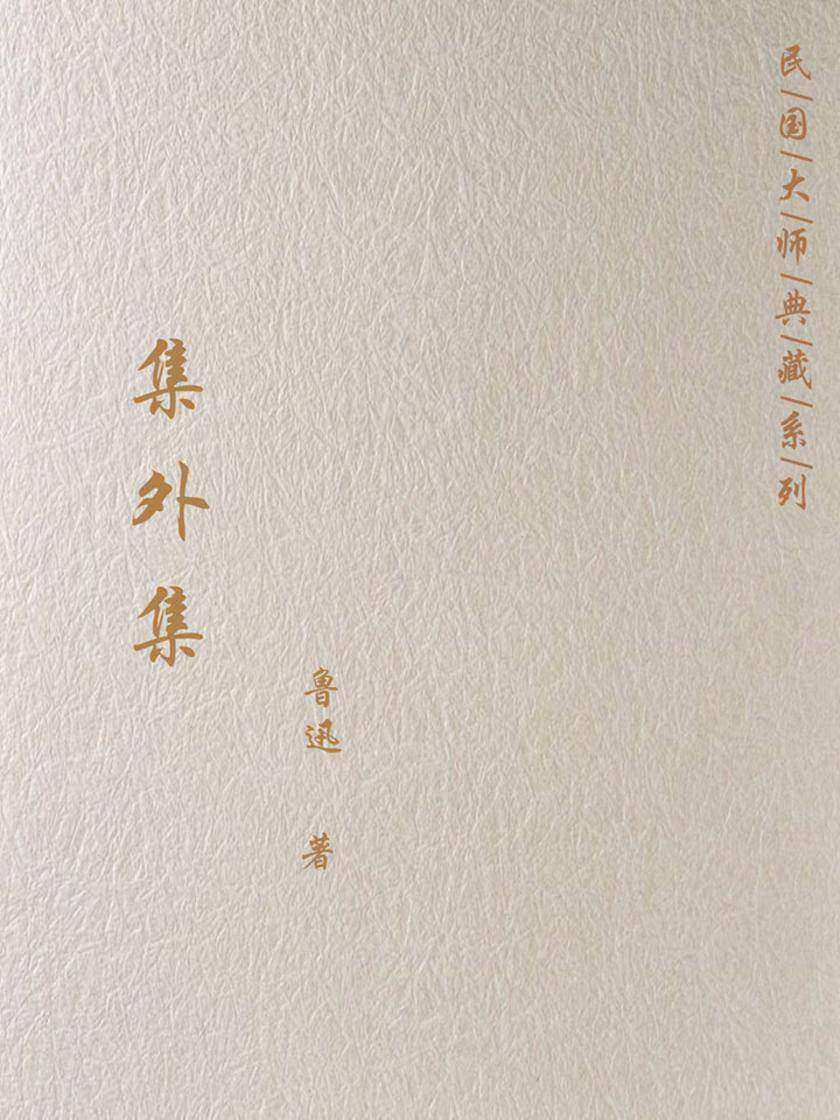 民/国/大/师/典/藏/系/列
集外集
鲁迅 著